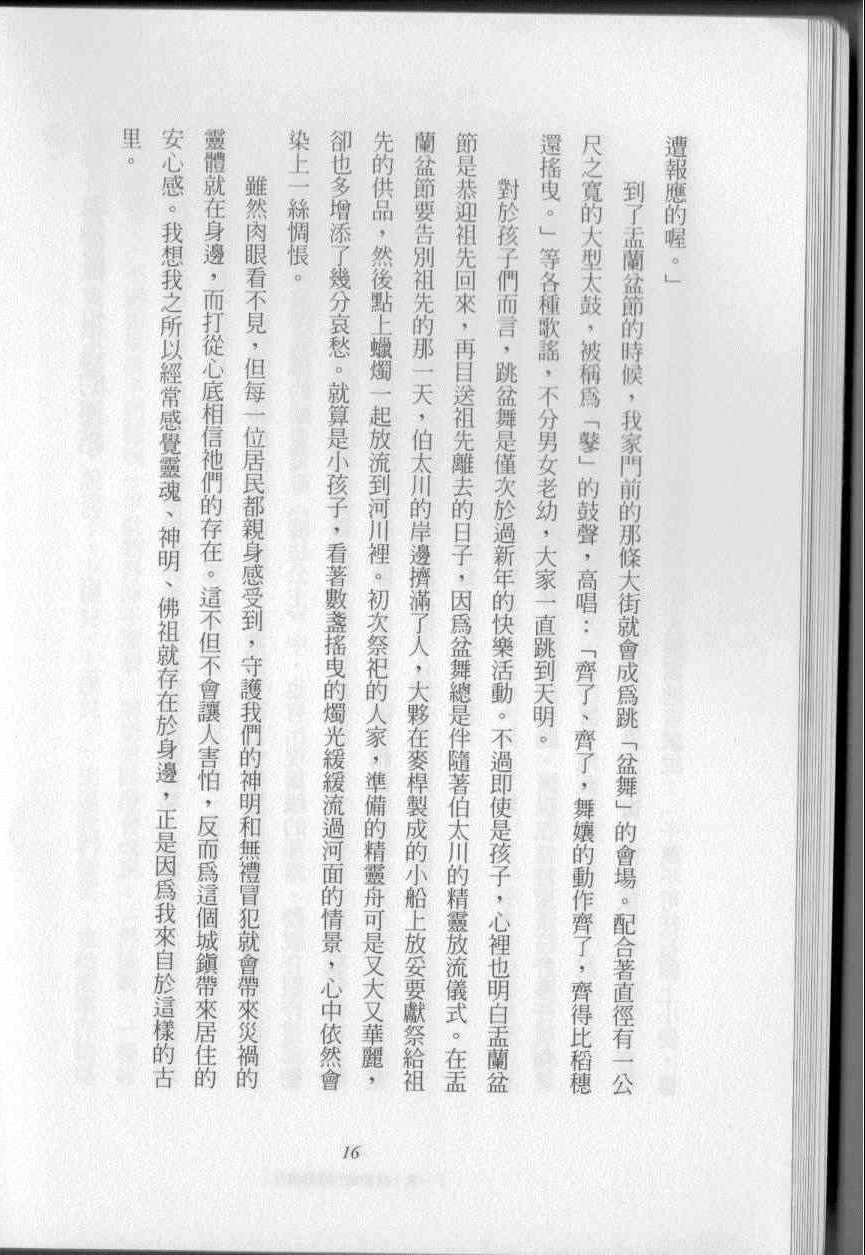 遭報應的喔。」
到了盂蘭盆節的時候，我家門前的那條大街就會成爲跳「盆舞」的會場。配合著直徑有一公
尺之寬的大型太鼓，被稱爲「鼕」的鼓聲，高唱：「齊了、齊了，舞孃的動作齊了，齊得比稻穗
還搖曳。」等各種歌謠，不分男女老幼，大家一直跳到天明。
對於孩子們而言，跳盆舞是僅次於過新年的快樂活動。不過即使是孩子，心裡也明白盂蘭盆
節是恭迎祖先回來，再目送祖先離去的日子，因爲盆舞總是伴隨著伯太川的精靈放流儀式。在盂
蘭盆節要告別祖先的那一天，伯太川的岸邊擠滿了人，大夥在麥桿製成的小船上放妥要獻祭給祖
先的供品，然後點上蠟燭一起放流到河川裡。初次祭祀的人家，準備的精靈舟可是又大又華麗，
卻也多增添了幾分哀愁。就算是小孩子，看著數盞搖曳的燭光緩緩流過河面的情景，心中依然會
染上一絲惆悵。
雖然肉眼看不見，但每一位居民都親身感受到，守護我們的神明和無禮冒犯就會帶來災禍的
靈體就在身邊，而打從心底相信祂們的存在。這不但不會讓人害怕，反而爲這個城鎭帶來居住的
安心感。我想我之所以經常感覺靈魂、神明、佛祖就存在於身邊，正是因爲我來自於這樣的古
里。
16